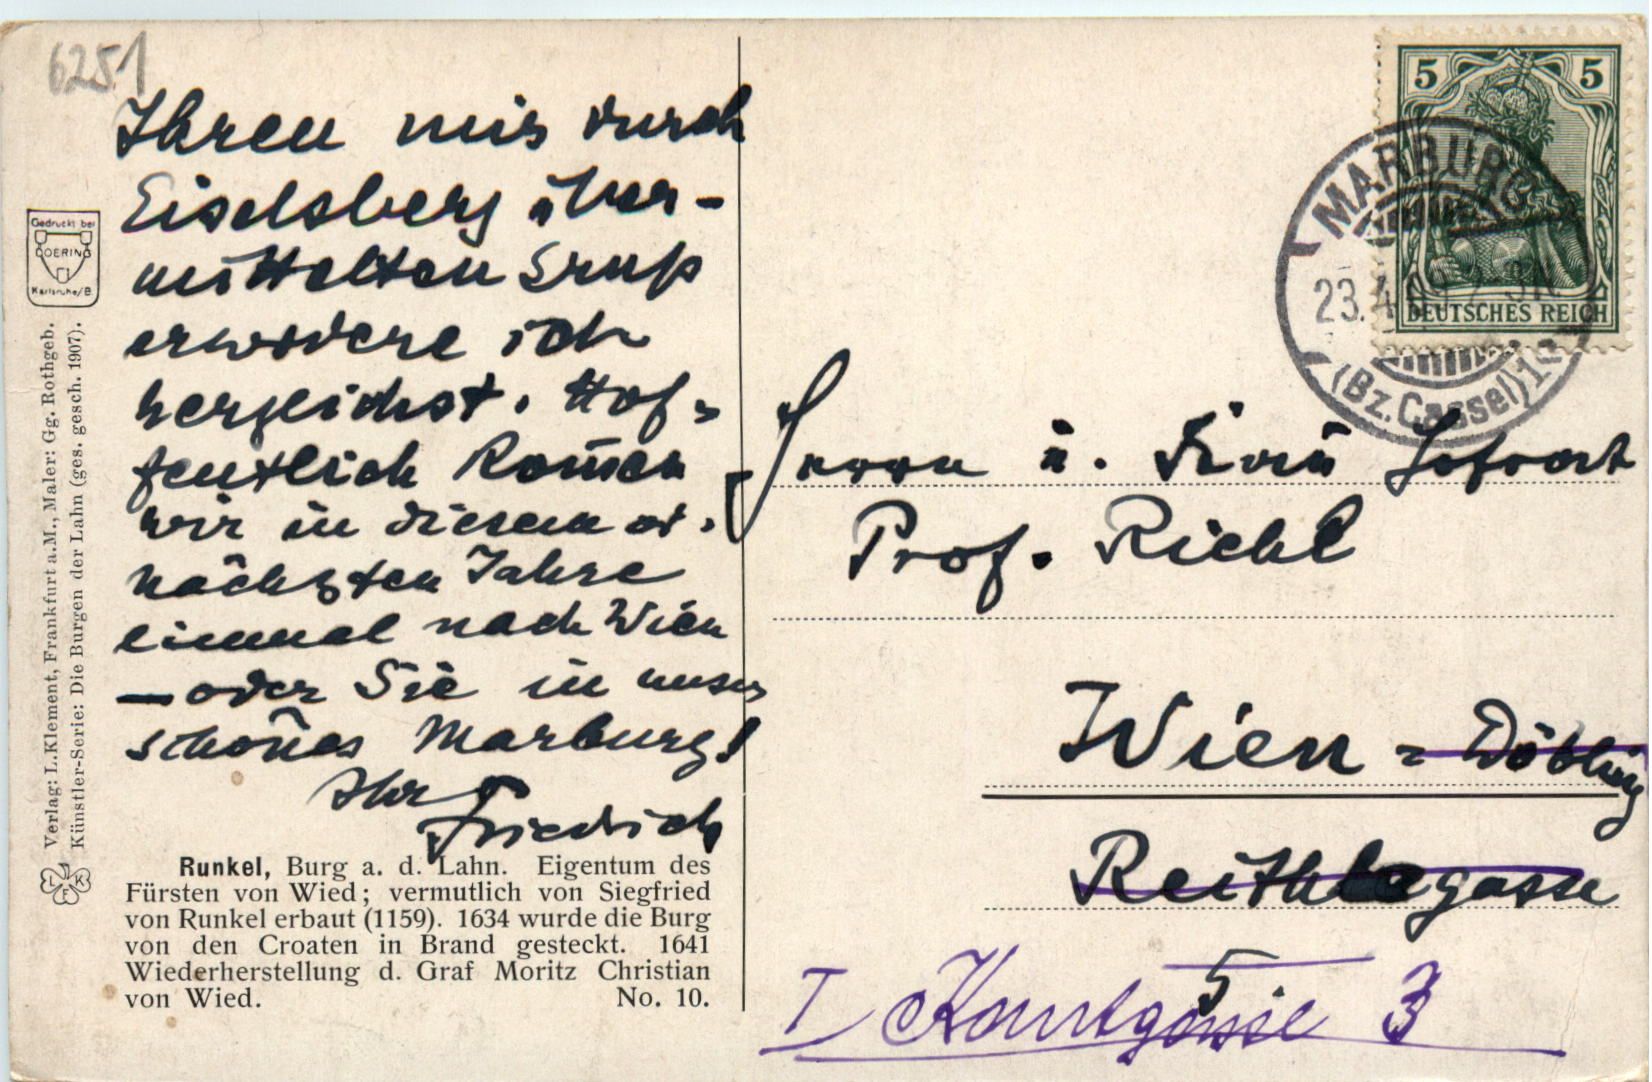 6251
Ihren mir durch
Eiselsberg über-
mittelten Gruß
erwidere ich
herzlichst. Hof-
fentlich kommen
wir in diesem od.
nächsten Jahre
einmal nach Wien
— oder Sie in unser
schönes Marburg!
Ihr
Friedrich
Gedruckt bei
DOERING
Karlsruhe/B.
Verlag: L. Klement, Frankfurt a. M., Maler: Gg. Rothgeb.
Künstler-Serie: Die Burgen der Lahn (ges. gesch. 1907).
L F K
Runkel, Burg a. d. Lahn. Eigentum des
Fürsten von Wied; vermutlich von Siegfried
von Runkel erbaut (1159). 1634 wurde die Burg
von den Croaten in Brand gesteckt. 1641
Wiederherstellung d. Graf Moritz Christian
von Wied. No. 10.
5 5
DEUTSCHES REICH
MARBURG
23.4.
(Bz. Cassel)
Herrn u. Frau Hofrat
Prof. Riehl
Wien - Döbling
Reithlegasse
5
I Kantgasse 3